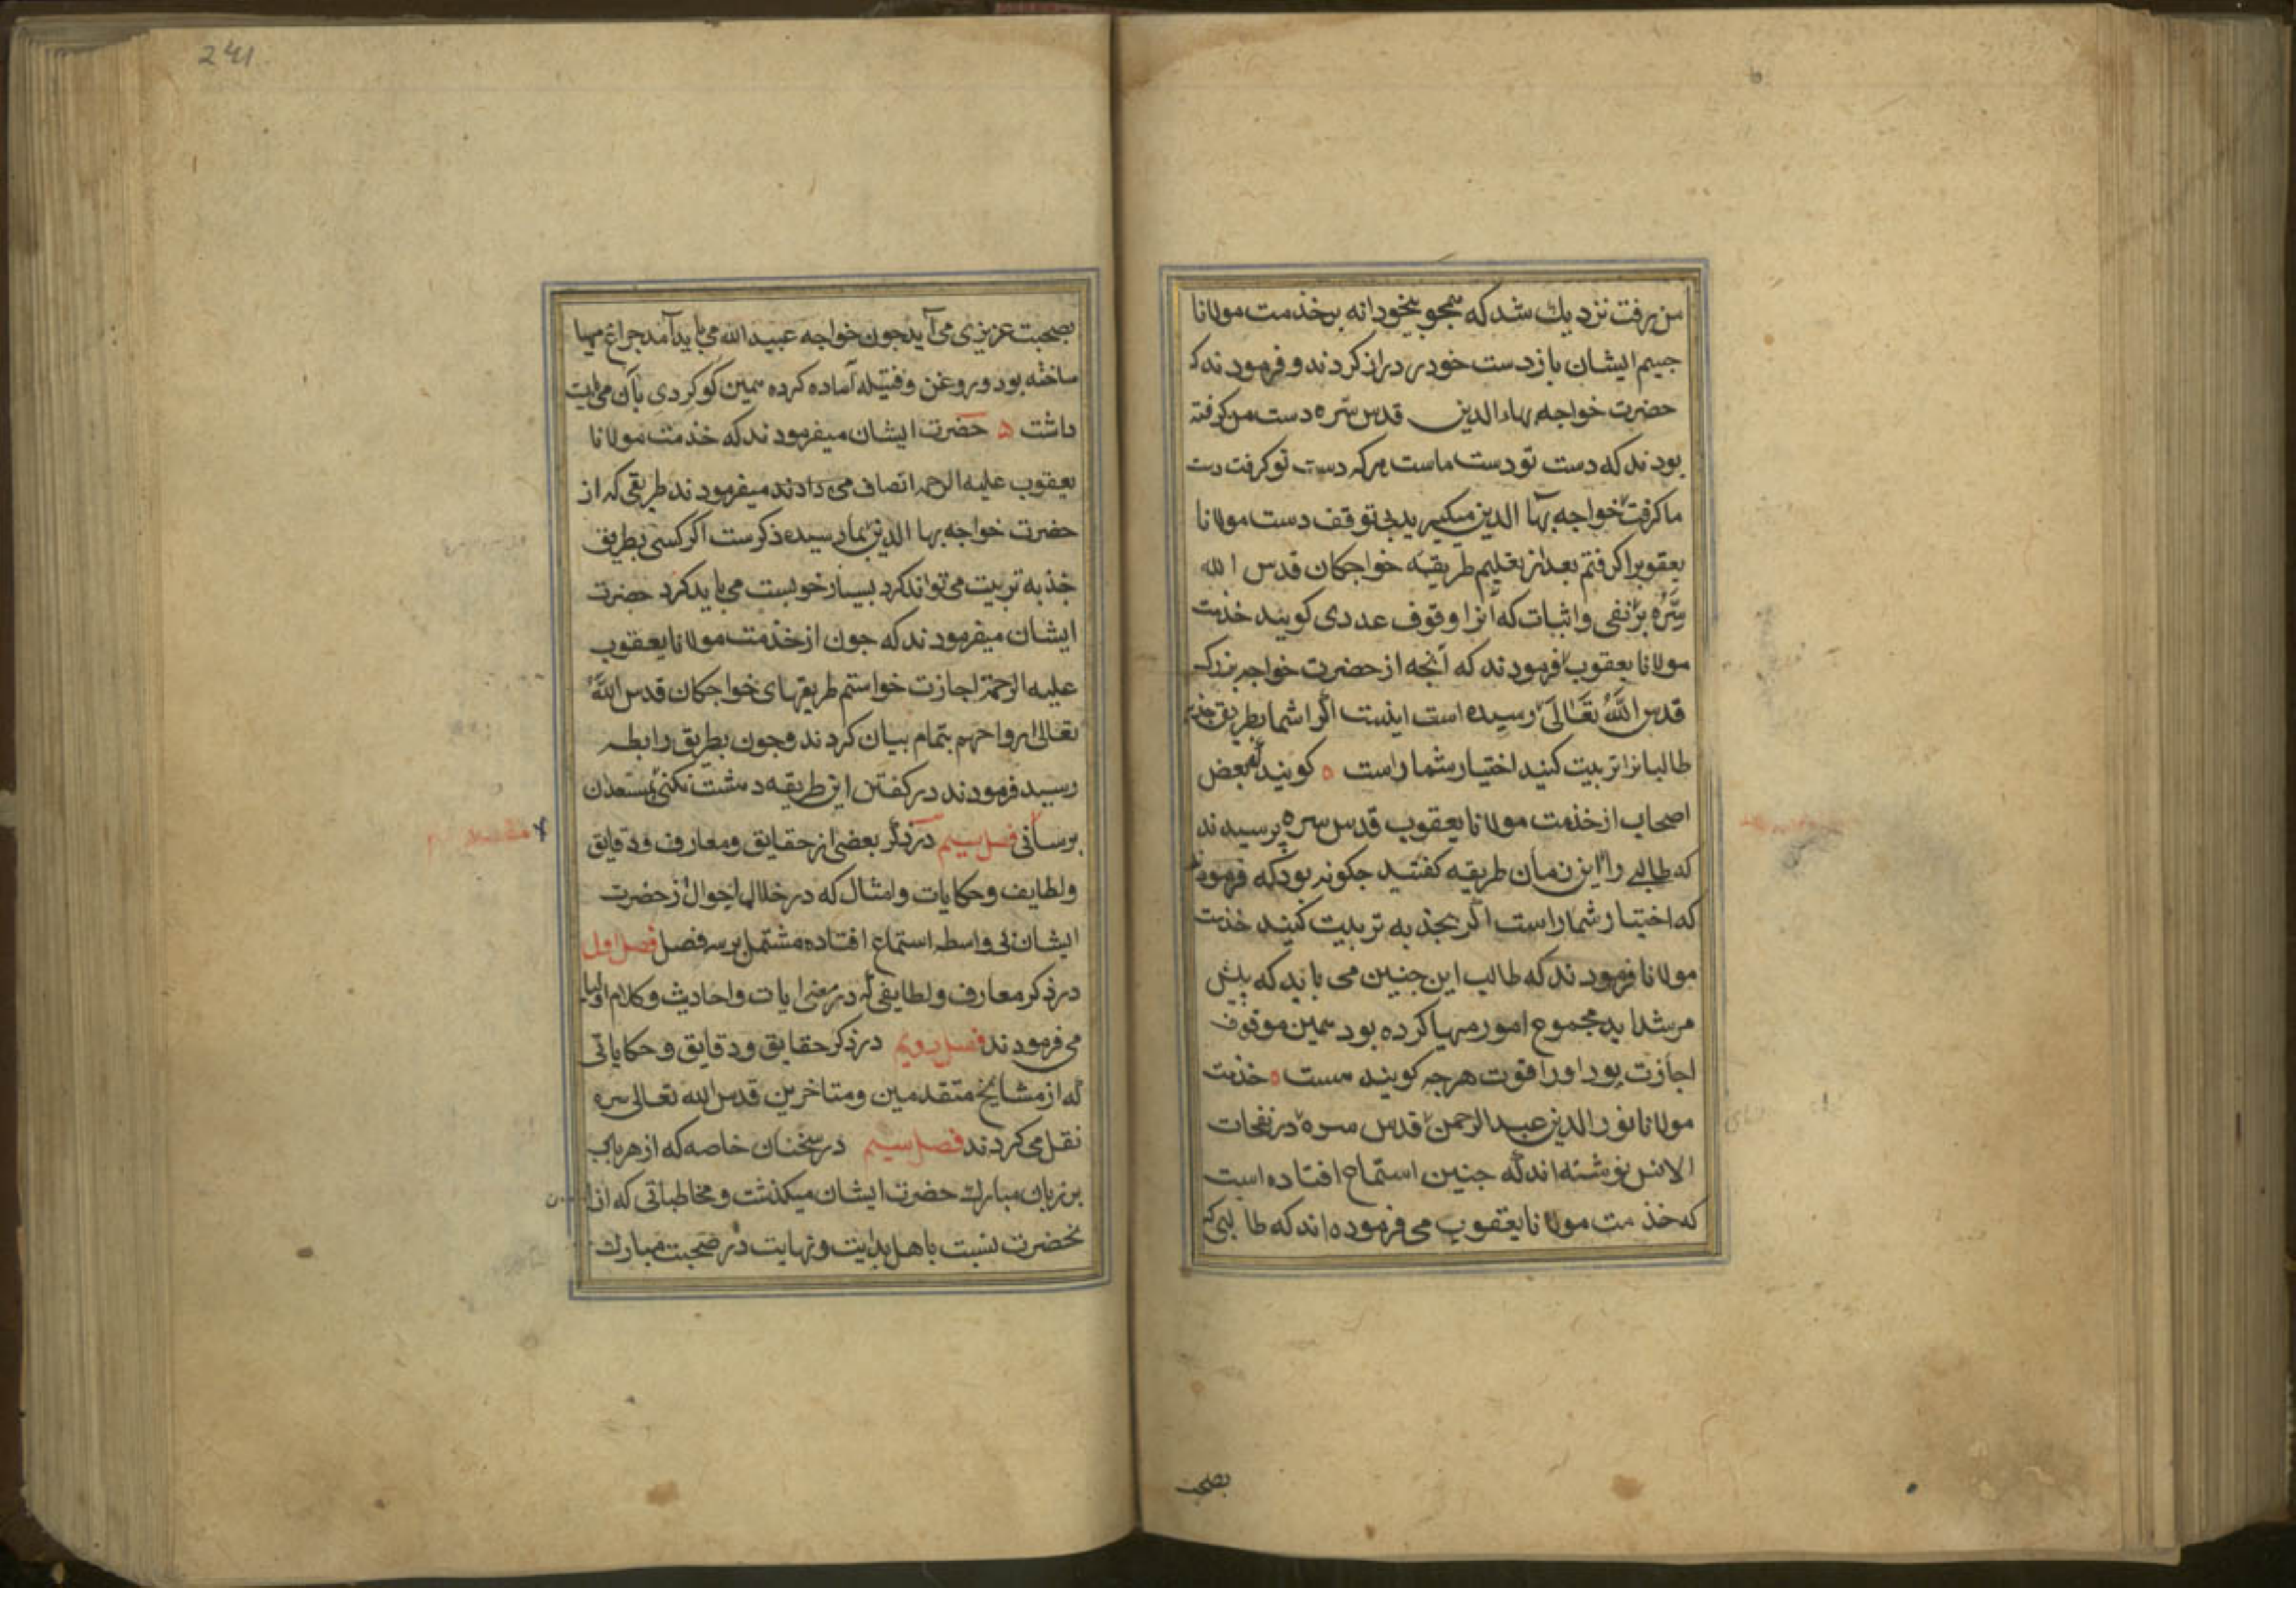 من برفت نزدیك شد که همچو بیخودانه بر خدمت مولانا
جسپم ایشان باز دست خود را دراز کردند و فرمودند که
حضرت خواجه بهاء الدین قدس سّره دست من کرفته
بودند که دست تو دست ماست هرکه دست تو کرفت دست
ما کرفت خواجه بهآ الدین میکیرید بی توقف دست مولانا
یعقوبرا کرفتم بعد از تعلیم طریقهٔ خواجکان قدس الله
سّره بر نفی واثبات که آنرا وقوف عددی کویند خدمت
مولانا یعقوب فرمودند که آنچه از حضرت خواجه بزرك
قدس اللّٰه تَعَالَی رسیده است اینست اکر شما بطریق جذبه
طالبانرا تربیت کنید اختیار شما راست ٥ کویند که بعض
اصحاب از خدمت مولانا یعقوب قدس سره پرسیدند
که طالبی را این زمان طریقه کفتید جکونه بود که فرمودند
که اختیار شما راست اکر بجذبه تربیت کنید خدمت
مولانا فرمودند که طالب این جنین می باید که پیش
مرشد اید مجموع امور مهیا کرده بود همین موقوف
اجازت بود او را قوت هرجه کویند هست ٥ خدمت
مولانا نور الدین عبد الرحمن قدس سره در نفحات
الانس نوشته اند که جنین استماع افتاده است
که خدمت مولانا یعقوب می فرموده اند که طالبی که
بصحبت
241
بصحبت عزیزی می آید جون خواجه عبید الله می باید آمد جراغ مهیا
ساخته بود و روغن و فتیله آماده کرده همین کوکردی بآن می بایست
داشت ٥ حضرت ایشان میفرمودند که خدمت مولانا
یعقوب علیه الرحمه انصاف می دادند میفرمودند طریقی که از
حضرت خواجه بها الدین بما رسیده ذکرست اکر کسی بطریق
جذبه تربیت می تواند کرد بسیار خوبست می باید کرد حضرت
ایشان میفرمودند که جون از خدمت مولانا یعقوب
علیه الرحمة اجازت خواستم طریقهای خواجکان قدس اللّٰه
تعالی ارواحهم بتمام بیان کردند و جون بطریق رابطه
رسید فرمودند در کفتن این طریقه دهشت نکنی بمستعدان
برسانی فصل سیم در ذکر بعضی از حقایق ومعارف ودقایق
ولطایف وحکایات وامثال که در خلال احوال از حضرت
ایشان بی واسطه استماع افتاده مشتمل بر سه فصل فصل اول
در ذکر معارف ولطایفی که در معنی ایات واحادیث وکلام اولیا
می فرمودند فصل دویم در ذکر حقایق ودقایق وحکایاتی
که از مشایخ متقدمین ومتاخرین قدس الله تعالی سره
نقل می کردند فصل سیم در سخنان خاصه که از هر باب
بر زبان مبارك حضرت ایشان میکذشت ومخاطباتی که از
نحضرت نسبت باهل بدایت ونهایت در صحبت مبارك